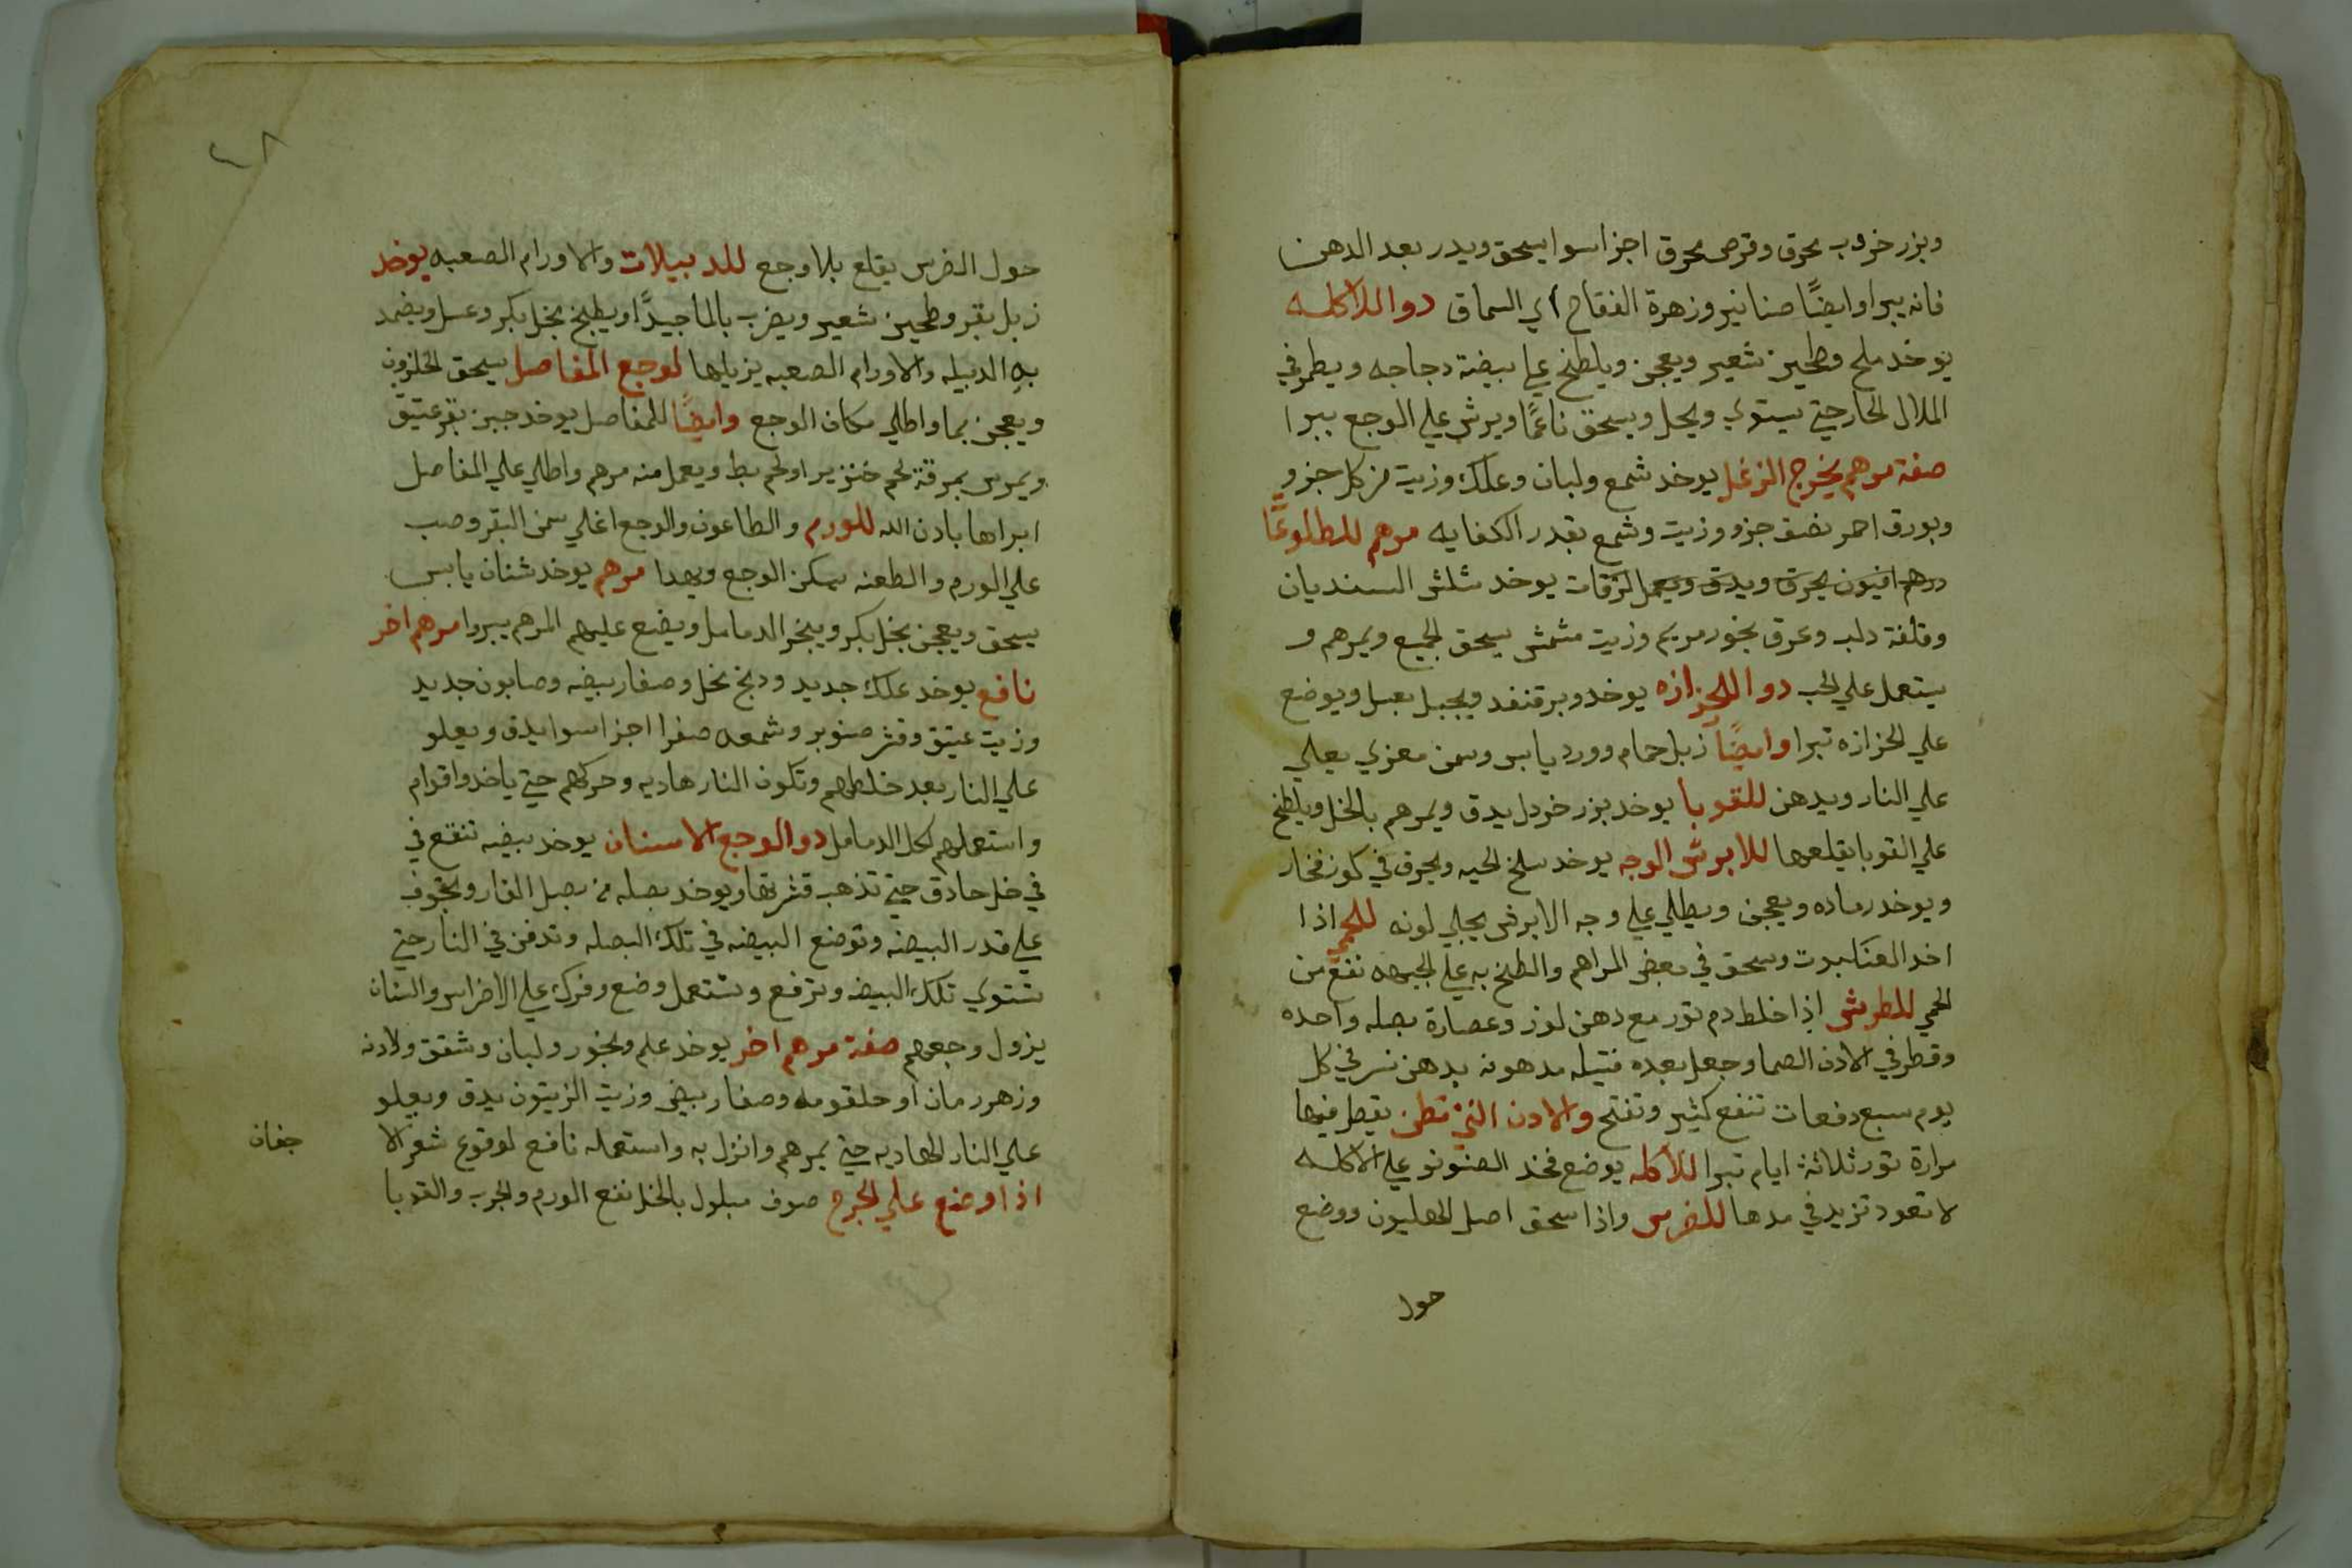 وبزر خروب محرق وقرص محرق اجزا سوا يسحق ويدر بعد الدهن
فانه يبرا وايضًا صنانير وزهرة الفقاح اي السماق دوا للاكله
يوخد ملح وطحين شعير ويعجن ويلطخ علي بيضة دجاجه ويطمر في
الملال الحار حتي يستوي ويحل ويسحق ناعمًا ويرش علي الوجع يبرا
صفة مرهم يخرج الزغل يوخد شمع ولبان وعلك وزيت من كل جزو
وبورق احمر نصف جزو وزيت وشمع بقدر الكفايه مرهم للطلوعًا
درهم افيون يحرق ويدق ويعمل لزقات يوخد شلش السنديان
وقلفة دلب وعرق بخور مريم وزيت مشمش يسحق الجميع ويمرهم و
يستعمل علي الحب دوا للحزازه يوخد وبر قنفد ويجبل بعسل ويوضع
علي الحزازه تبرا وايضًا زبل حمام وورد يابس وسمن معزي يغلي
علي النار ويدهن للقوبا يوخد بزر خردل يدق ويمرهم بالخل ويلطخ
علي القوبا يقلعها للابرش الوجه يوخد سلخ الحيه ويحرق في كوز فخار
ويوخد رماده ويعجن ويطلي علي وجه الابرش يجلي لونه للحمي اذا
اخد العنكبوت وسحق في بعض المراهم والطخ به علي الجبهه نفع من
الحمي للطرش اذا خلط دم تور مع دهن لوز وعصارة بصله واحده
وقطر في الادن الصما وجعل بعده فتيله مدهونه بدهن نسر في كل
يوم سبع دفعات تنفع كثير وتفتح والادن التي تطن يقطر فيها
مرارة تور ثلاثة ايام تبرا للاكله يوضع فخد الصنونو علي الاكله
لا تعود تزيد في مدها للضرس واذا سحق اصل الهليون ووضع
حول
٤٨
حول الضرس يقلع بلا وجع للدبيلات والاورام الصعبه يوخد
زبل بقر وطحين شعير ويضرب بالما جيدًا ويطبخ بخل بكر وعسل ويضمد
به الدبيله والاورام الصعبه يزيلها لوجع المفاصل يسحق الحلزون
ويعجن بما واطلي مكان الوجع وايضًا للمفاصل يوخد جبن بقر عتيق
ويمرس بمرقة لحم خنزير او لحم بط ويعمل منه مرهم واطلي علي المفاصل
ابراها بادن الله للورم والطاعون والوجع اغلي سمن البقر وصب
علي الورم والطعنه يسكن الوجع ويهدا مرهم يوخد شنان يابس
يسحق ويعجن بخل بكر ويبخر الدمامل ويضع عليهم المرهم يبروا مرهم اخر
نافع يوخد علك جديد ودبخ نخل وصفار بيضه وصابون جديد
وزيت عتيق وقشر صنوبر وشمعه صفرا اجزا سوا يدق ويغلو
علي النار بعد خلطهم وتكون النار هاديه وحركهم حتي ياخدوا قوام
واستعملهم لكل الدمامل دوا لوجع الاسنان يوخد بيضه تنقع في
في خل حادق حتي تذهب قشرتها ويوخد بصله من بصل الفار ويجوف
علي قدر البيضه وتوضع البيضه في تلك البصله وتدفن في النار حتي
تشتوي تلك البيضه وترفع وتستعمل وضع وفرك علي الاضراس والسنان
يزول وجعهم صفة مرهم اخر يوخد علم وبخور ولبان وشقق ولادنه
وزهر رمان او حلقومه وصفار بيض وزيت الزيتون يدق ويغلو
علي النار الهاديه حتي يمرهم وانزل به واستعمله نافع لوقوع شعر الا
جفان
اذا وضع علي الجرح صوف مبلول بالخل نفع الورم والجرب والقوبا